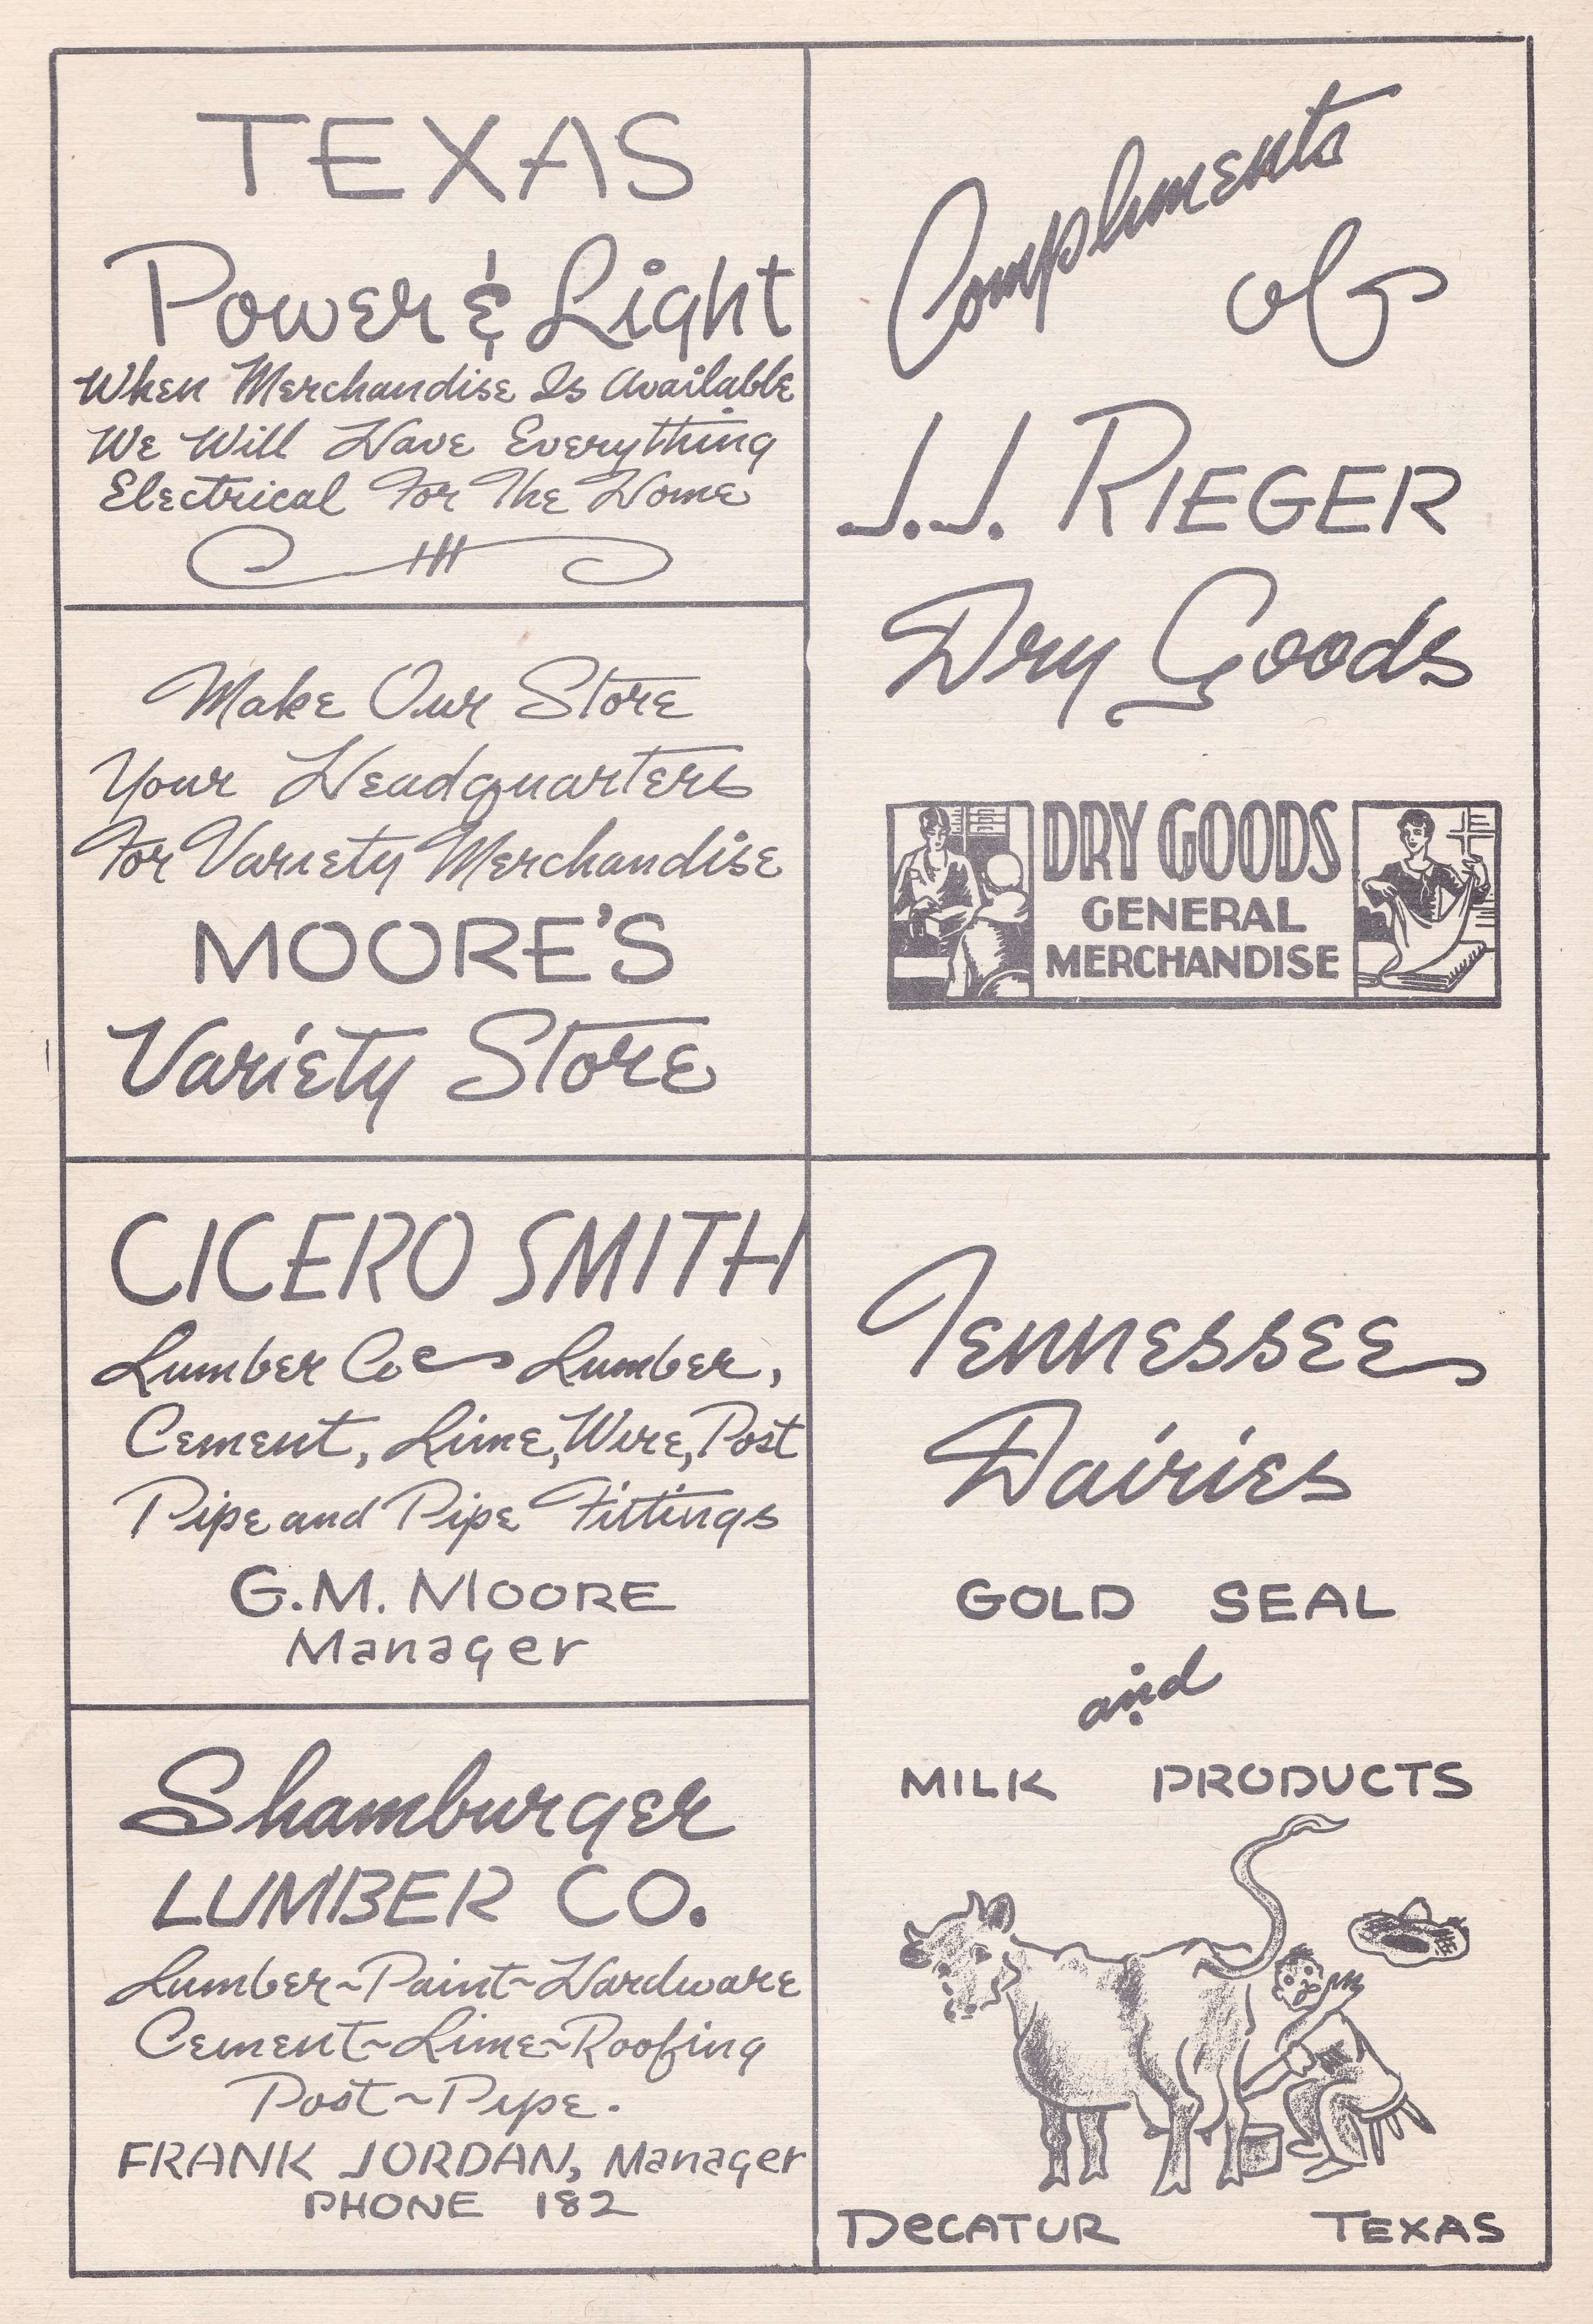 TEXAS
Power & Light
When Merchandise Is Available
We Will Have Everything
Electrical For The Home
Make Our Store
Your Headquarters
For Variety Merchandise
MOORE'S
Variety Store
CICERO SMITH
Lumber Co Lumber,
Cement, Lime, Wire, Post
Pipe and Pipe Fittings
G.M. MOORE
Manager
Shamburger
LUMBER CO.
Lumber~Paint~Hardware
Cement~Lime~Roofing
Post~Pipe.
FRANK JORDAN, Manager
PHONE 182
Compliments
of
J.J. RIEGER
Dry Goods
DRY GOODS
GENERAL
MERCHANDISE
Tennessee
Dairies
GOLD SEAL
and
MILK PRODUCTS
DeCATUR TEXAS